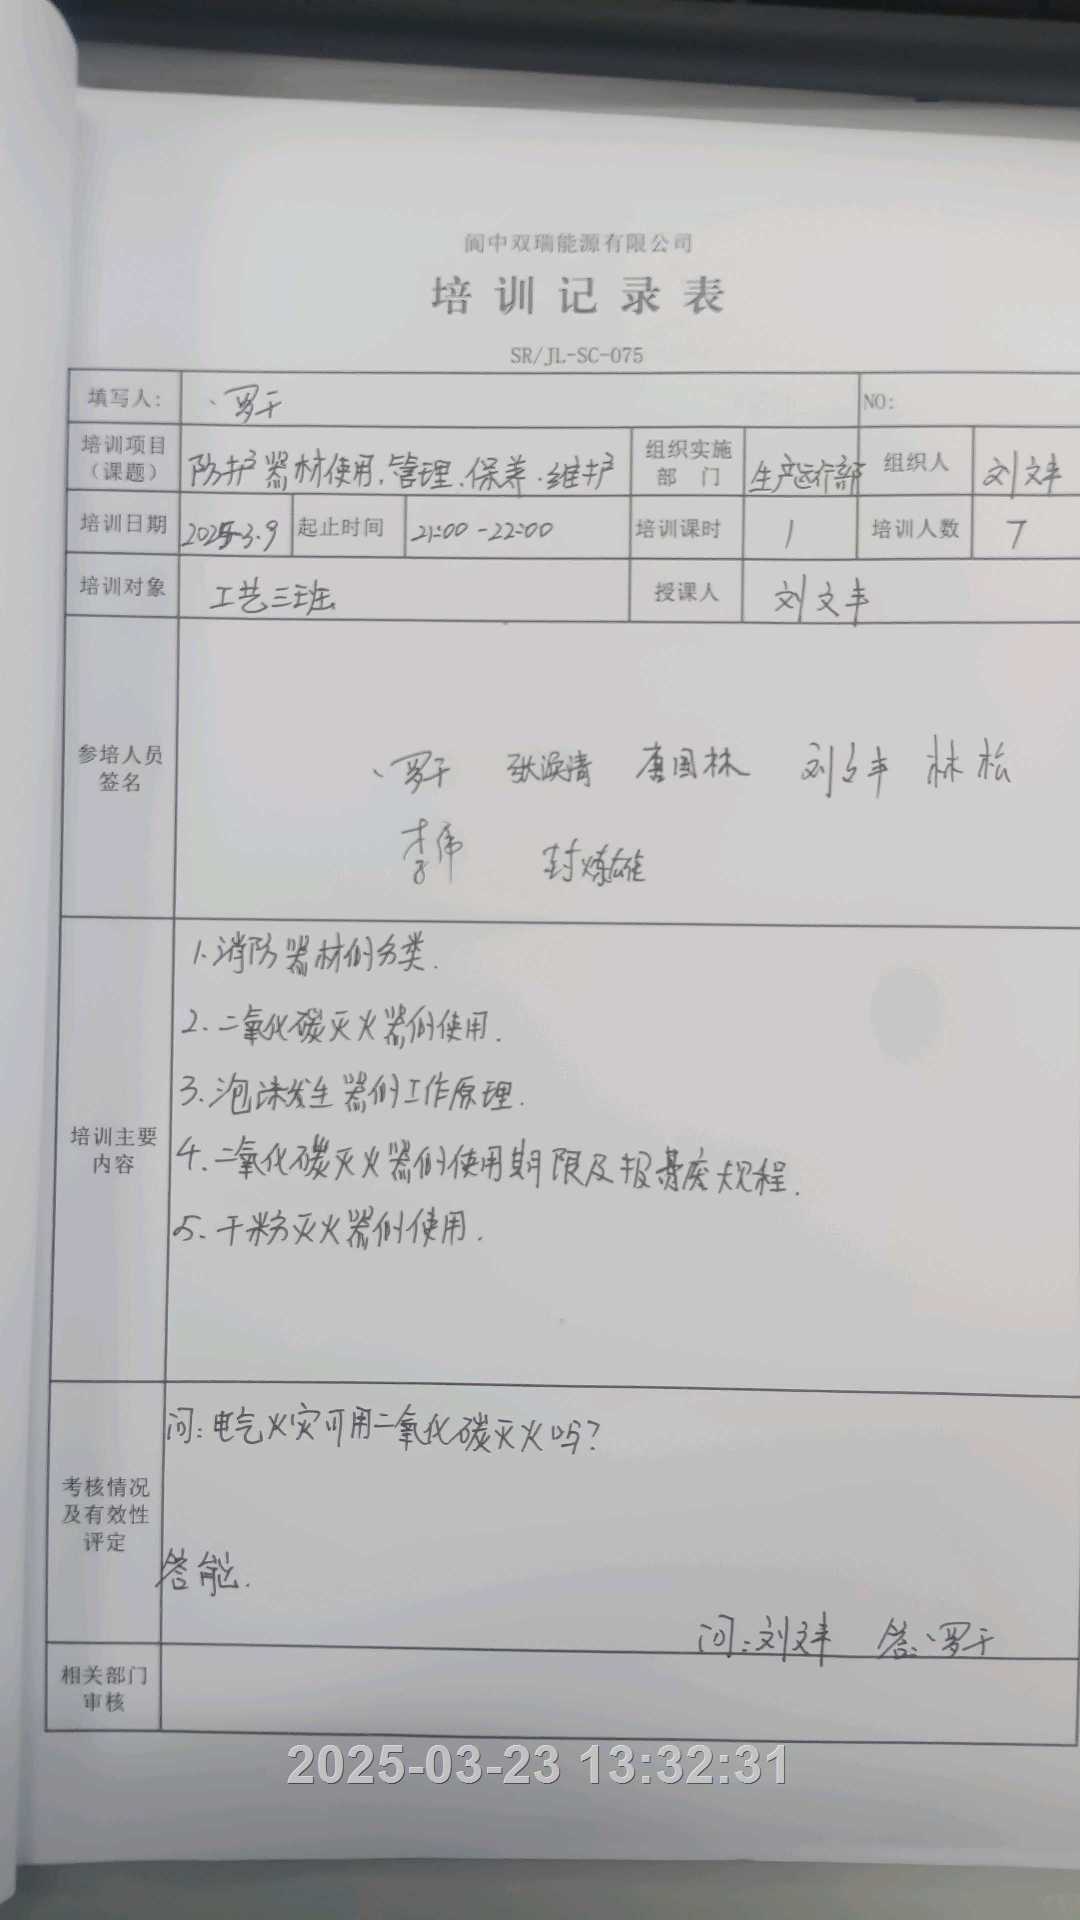 阆中双瑞能源有限公司
培训记录表
SR/JL-SC-075
填写人: 罗千 NO:
培训项目(课题) 防护器材使用.管理.保养.维护 组织实施部门 生产运行部 组织人 刘文丰
培训日期 2025.3.9 起止时间 21:00-22:00 培训课时 1 培训人数 7
培训对象 工艺三班 授课人 刘文丰
参培人员签名
罗千 张涣清 唐国林 刘文丰 林松
李伟 封炼雄
培训主要内容
1.消防器材的分类.
2.二氧化碳灭火器的使用.
3.泡沫发生器的工作原理.
4.二氧化碳灭火器的使用期限及报废规程.
5.干粉灭火器的使用.
考核情况及有效性评定
问:电气火灾可用二氧化碳灭火吗?
答能.
问:刘文丰 答:罗千
相关部门审核
2025-03-23 13:32:31